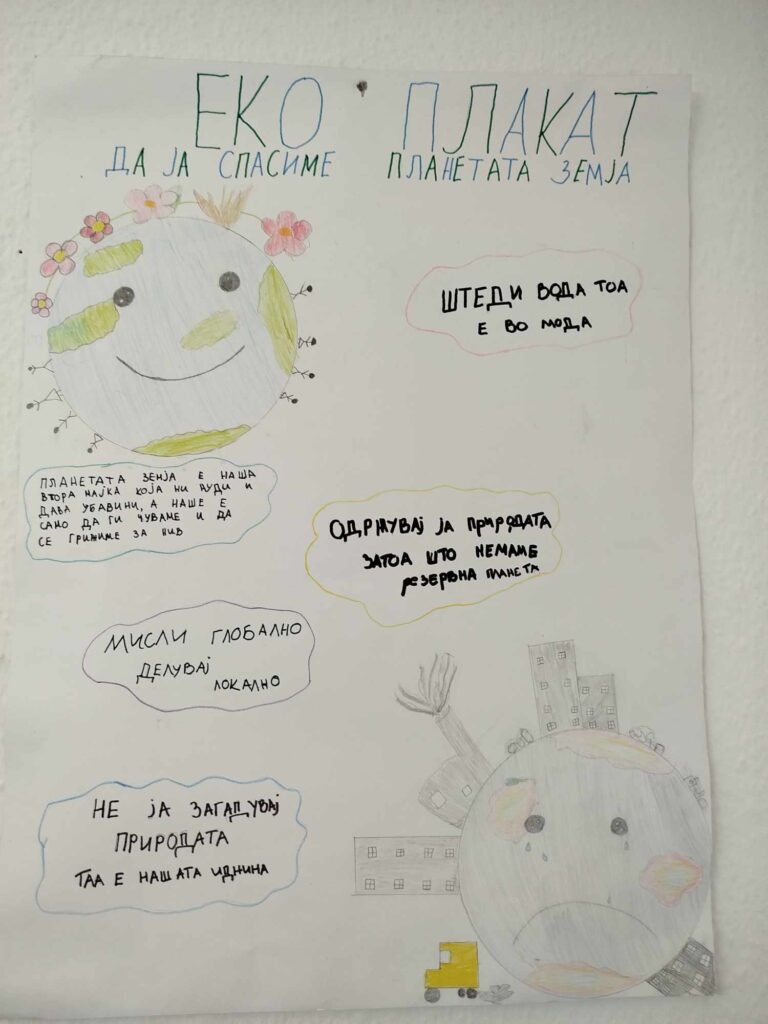 ЕКО ПЛАКАТ
ДА ЈА СПАСИМЕ ПЛАНЕТАТА ЗЕМЈА
ШТЕДИ ВОДА ТОА
Е ВО МОДА
ПЛАНЕТАТА ЗЕМЈА Е НАША
ВТОРА МАЈКА КОЈА НИ НУДИ И
ДАВА УБАВИНИ, А НАШЕ Е
САМО ДА ГИ ЧУВАМЕ И ДА
СЕ ГРИЖИМЕ ЗА НИВ
ОДРЖУВАЈ ЈА ПРИРОДАТА
ЗАТОА ШТО НЕМАМЕ
РЕЗЕРВНА ПЛАНЕТА
МИСЛИ ГЛОБАЛНО
ДЕЛУВАЈ
ЛОКАЛНО
НЕ ЈА ЗАГАДУВАЈ
ПРИРОДАТА
ТАА Е НАШАТА ИДНИНА